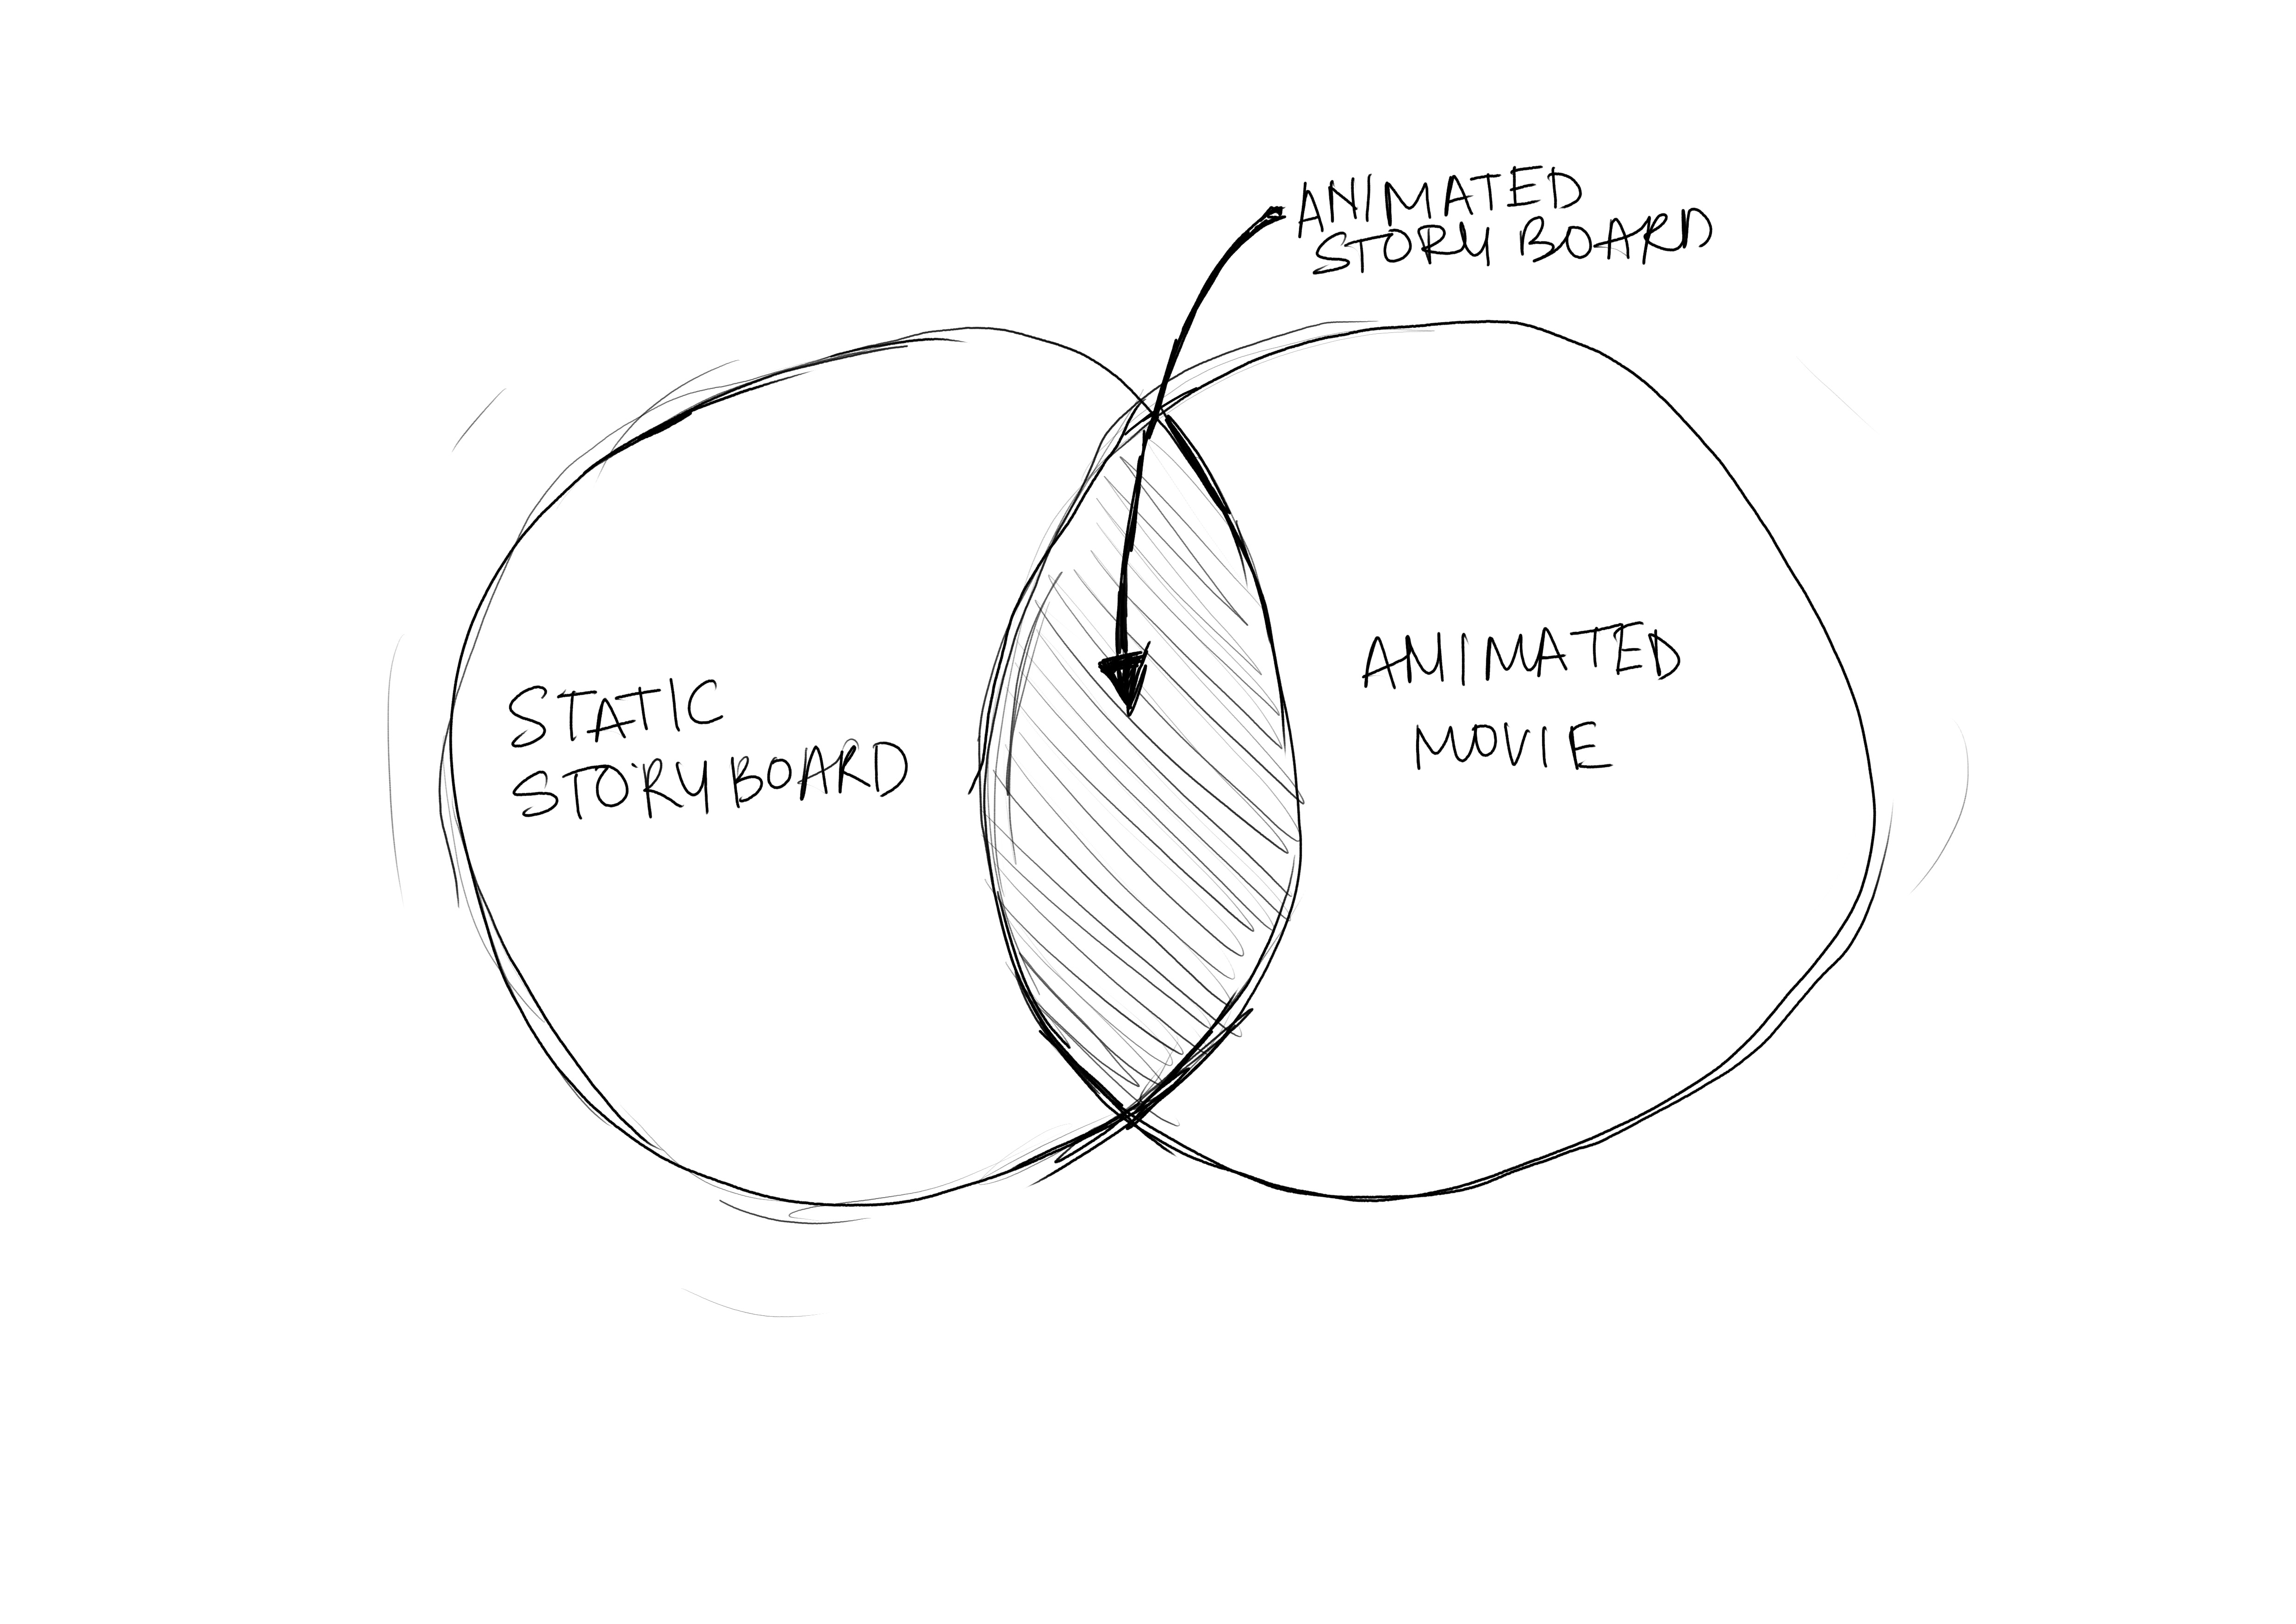 ANIMATED
STORYBOARD
STATIC
STORYBOARD
ANIMATED
MOVIE